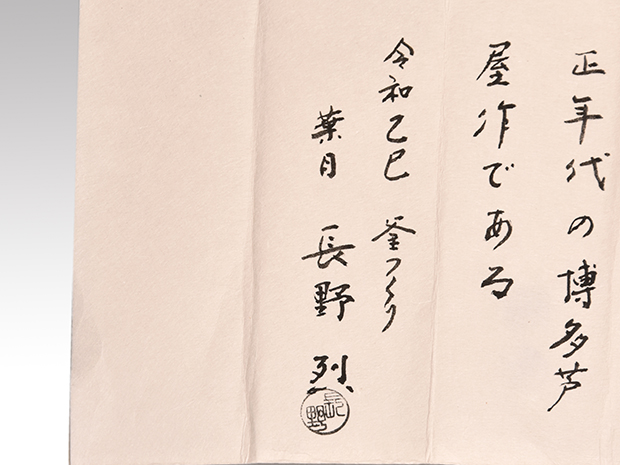 正年代の博多芦
屋作である
令和乙巳 釜つくり
葉月 長野 烈
長野